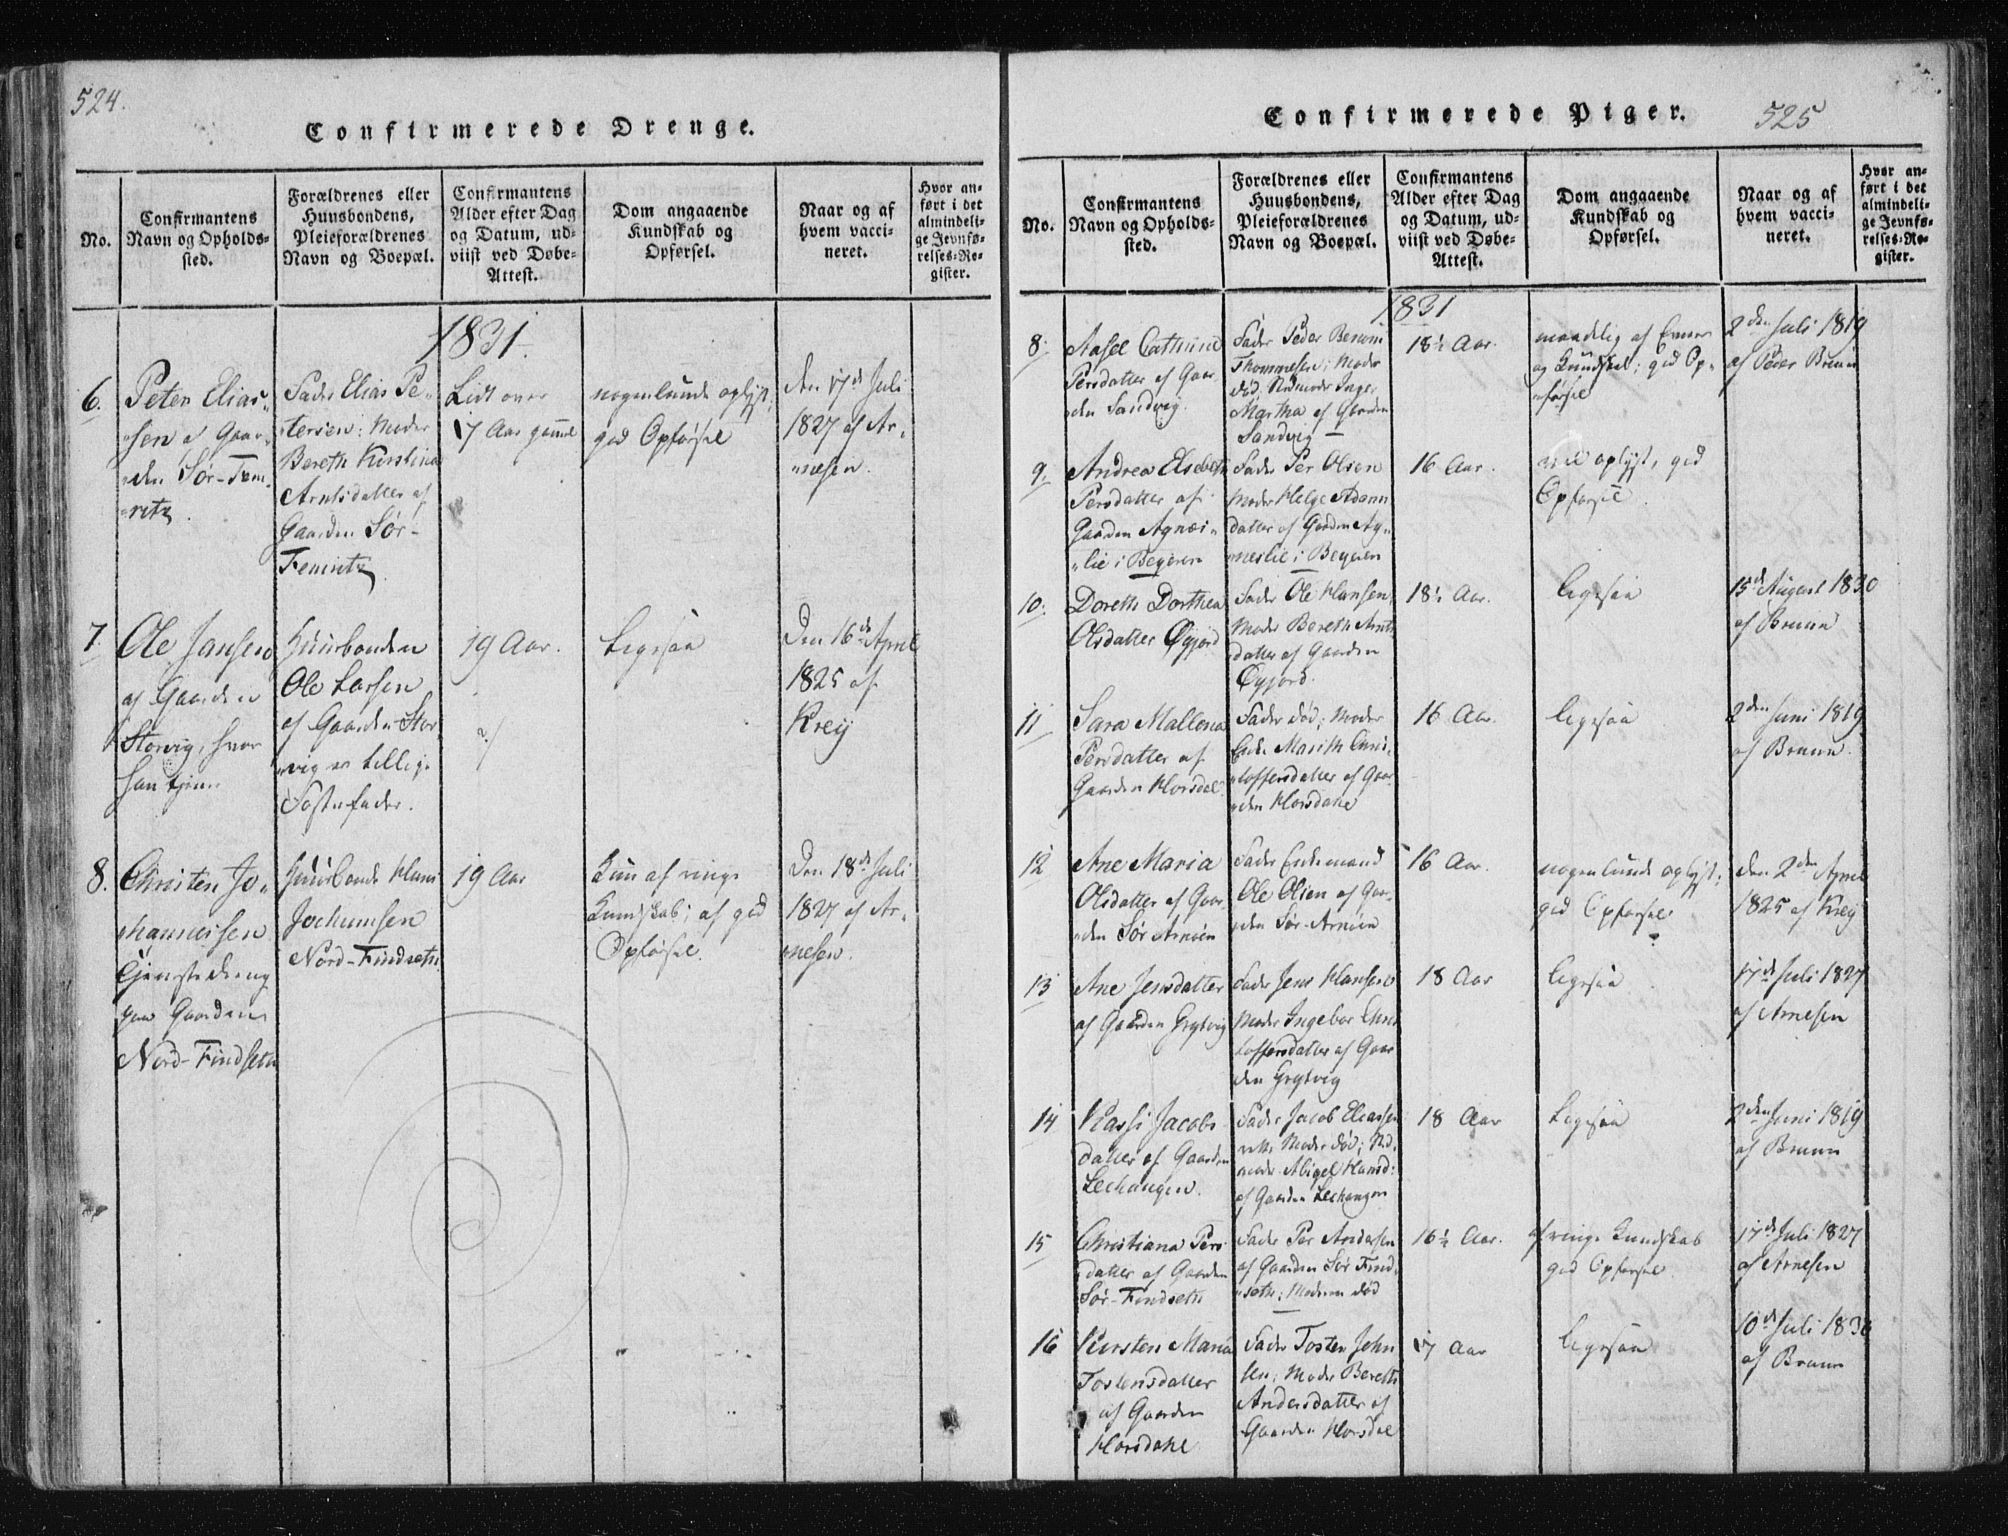 524.
Confirmerede Drenge.
No.
Confirmantens
Navn og Opholds-
sted.
Forældrenes eller
Huusbondens,
Pleieforældrenes
Navn og Boepæl.
Confirmantens
Alder efter Dag
og Datum, ud-
viist ved Døbe-
Attest.
Dom angaaende
Kundskab og
Opførsel.
Naar og af
hvem vacci-
neret.
Hvor an-
ført i det
almindeli-
ge Jevnfø-
relses-Re-
gister.
1831.
6.
Peter Elias-
sen af Gaar-
den Sør-
Fader Elias Pe-
tersen; Moder
Bereth Kirstina
Arntsdatter af
Gaarden Sør-
Lidt over
17 Aar gammel
nogenlunde oplyst;
god Opførsel
den 17de Juli
1827 af Ar-
nesen.
7.
Ole Jansen
af Gaarden
Storvig, hvor
han tjener
Huusbonden
Ole Larsen
af Gaarden Stor-
vig er tillige
Fosterfader.
19 Aar.
Ligesaa
Den 16de April
1825 af
Kreij
8.
Christen Jo-
hannessen
Tjenestedreng
paa Gaarden
Nord-Findseth
Huusbonde Hans
Jochumsen
Nord-Findseth
19 Aar
Kun af ringe
Kundskab; af god
Opførsel.
Den 18de Juli
1827 af Ar-
nesen.
Confirmerede Piger.
525
No.
Confirmantens
Navn og Opholds-
sted.
Forældrenes eller
Huusbondens,
Pleieforældrenes
Navn og Boepæl.
Confirmantens
Alder efter Dag
og Datum, ud-
viist ved Døbe-
Attest.
Dom angaaende
Kundskab og
Opførsel.
Naar og af
hvem vacci-
neret.
Hvor an-
ført i det
almindeli-
ge Jevnfø-
relses-Re-
gister.
1831
8.
Aasel Cathrine
Persdatter af Gaar-
den Sandvig.
Fader Peder Benoni
Thommesen; Moder
død; Stedmoder Inger
Martha af Gaarden
Sandvig
18½ Aar.
maadelig af
og Kundskab; god Op-
førsel
2den Juli 1819
af Peder Bruun
9.
Andrea Elsebeth
Persdatter af
Gaarden Agnæs-
lie i Begeren
Fader Per Olsen
Moder Helge Adam
datter af Gaarden Ag-
neslie i Begeren
16 Aar.
vel oplyst, god
Opførsel.
10.
Doreth Dorthea
Olsdatter Øyjord
Fader Ole Hansen,
Moder Bereth Arnts
datter af Gaarden
Øyjord.
18½ Aar.
ligesaa
15de August 1830
af Bruun
11
Sara Mallena
Persdatter af
Gaarden Horsdal
Fader død; Moder
Enke Marith Chris-
toffersdatter af Gaar-
den Horsdahl
16 Aar.
ligesaa
2den Juni 1819
af Bruun.
12
Ane Maria
Olsdatter af Gaar-
den Sør Arnøen
Fader Enkemand
Ole Olsen af Gaar-
den Sør-Arnøen
16 Aar.
nogenlunde oplyst;
god Opførsel
den 2den April
1825 af Kreij
13
Ane Jensdatter
af Gaarden Grytvig
Fader Jens Hansen
Moder Ingebor Chris
toffersdatter af Gaar
den Grytvig
18 Aar
ligesaa
17de Juli 1827
af Arnesen
14
Massi Jacobs
datter af Gaarden
Leehangen.
Fader Jacob Eliassen
Moder død; Sted-
moder Abigel Hansd:
af Gaarden Leehangen
18 Aar
Ligesaa
2den Juni 1819
af Bruun
15
Christiana Pers
datter af Gaarden
Sør-Findseth
Fader Per Andersen
af Gaarden Sør Find-
seth; Moderen død
16½ Aar.
af ringe Kundskab
god Opførsel
17de Juli 1827
af Arnesen
16
Kirsten Maria
Tostensdatter
af Gaarden
Horsdahl
Fader Tosten John
sen; Moder Bereth
Andersdatter af
Gaarden Horsdal
17 Aar
ligesaa
10de Juli 1830
af Bruun